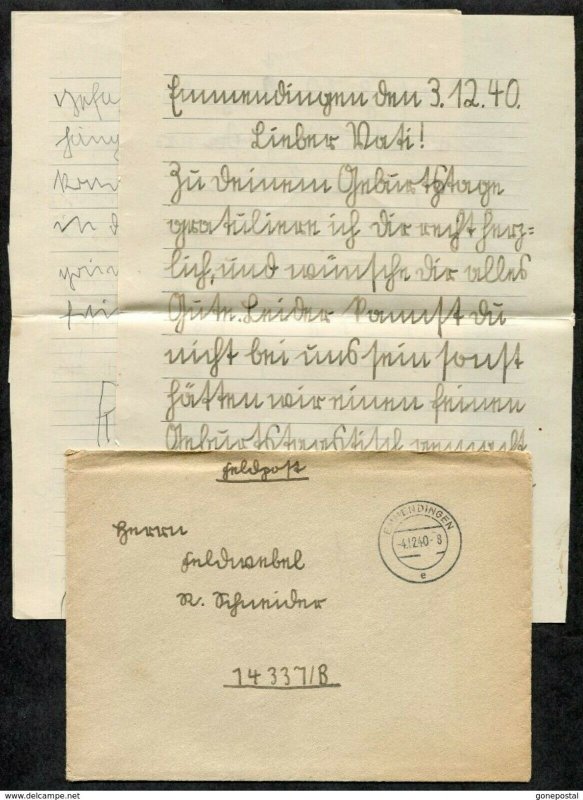 Emmendingen den 3.12.40.
Lieber Vati!
Zu deinem Geburtstage
gratuliere ich Dir recht herz=
lich, und wünsche Dir alles
Gute. Leider kannst du
nicht bei uns sein sonst
hätten wir einen feinen
Feldpost
Herrn
Feldwebel
R. Schneider
14 337/B
EMMENDINGEN
-4.12.40-8
e
www.ebay.com
gonepostal